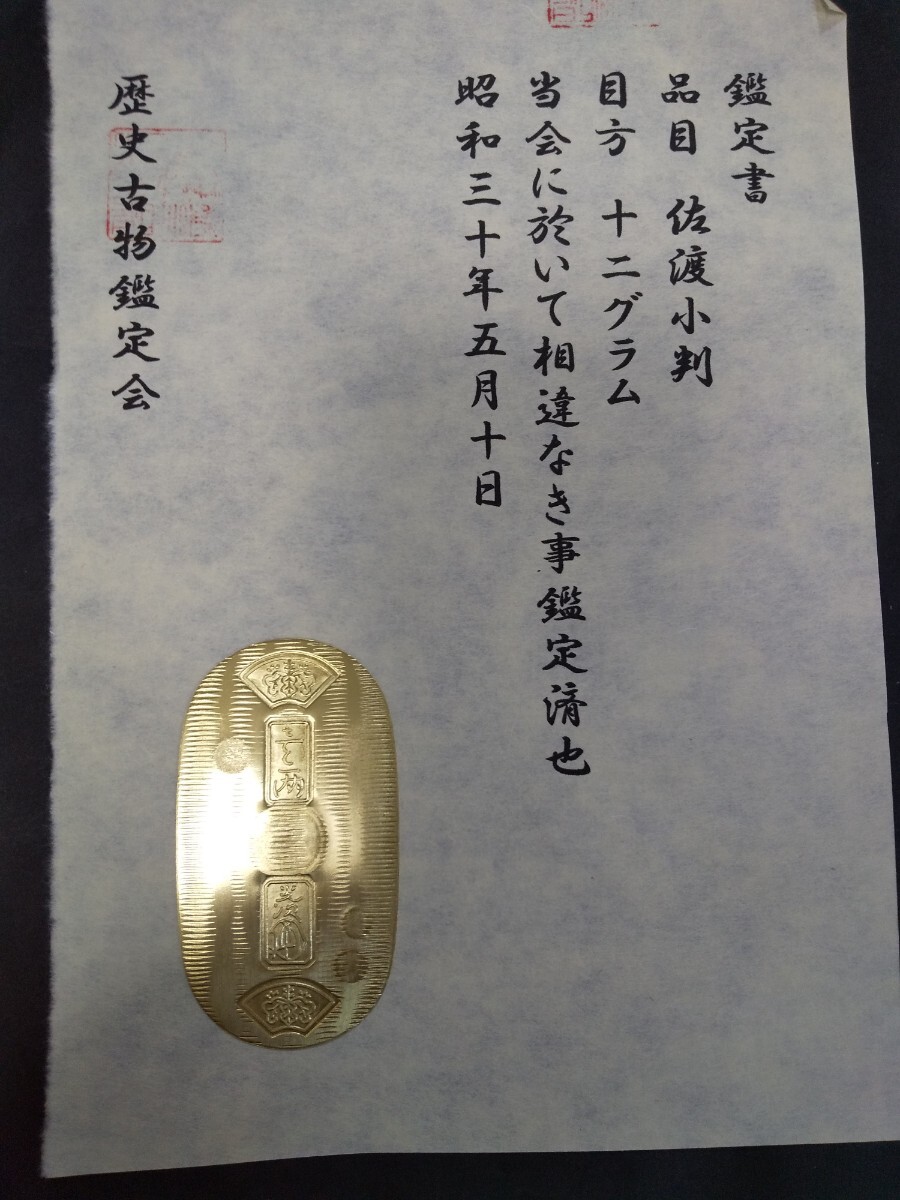 鑑定書
品目 佐渡小判
目方 十二グラム
当会に於いて相違なき事鑑定済也
昭和三十年五月十日
歴史古物鑑定会